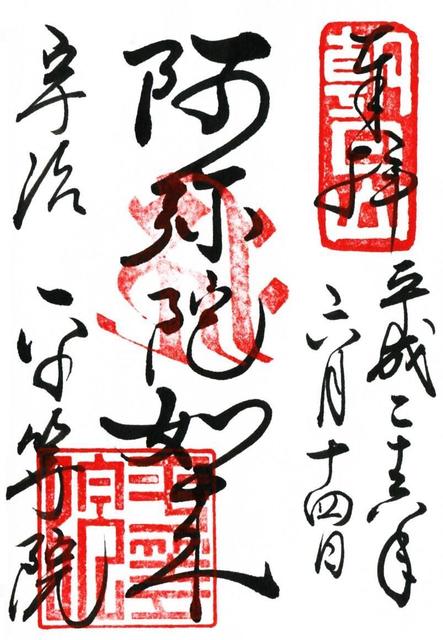 朝日山
奉拝
平成二十六年
六月十四日
阿弥陀如来
宇治 平等院